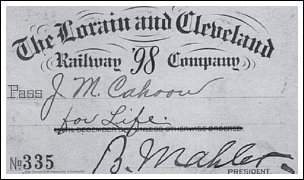 The Lorain and Cleveland
Railway '98 Company
Pass J. M. Cahoon
for Life.
UNTIL DECEMBER 31, UNLESS OTHERWISE ORDERED.
No 335 B. Mahler
PRESIDENT.